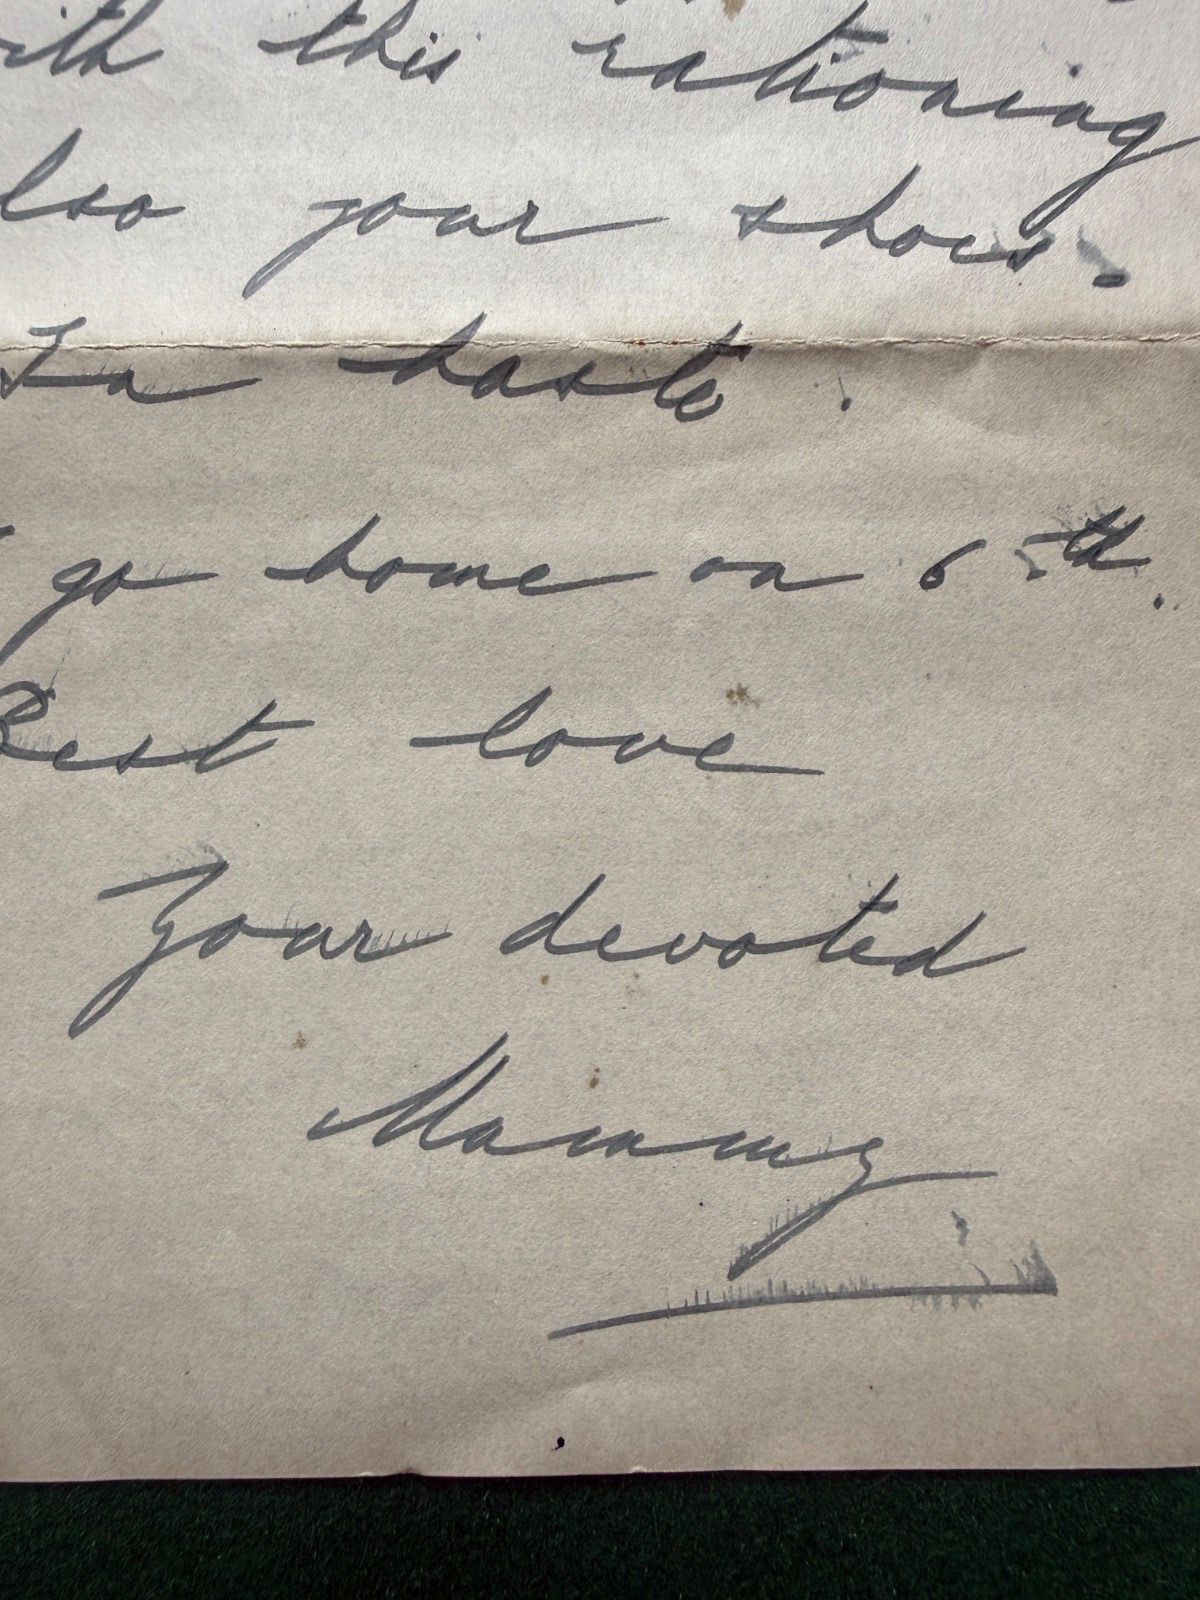 with this rationing
also your shoes.
In haste.
I go home on 6th.
Best love
Your devoted
Mammy